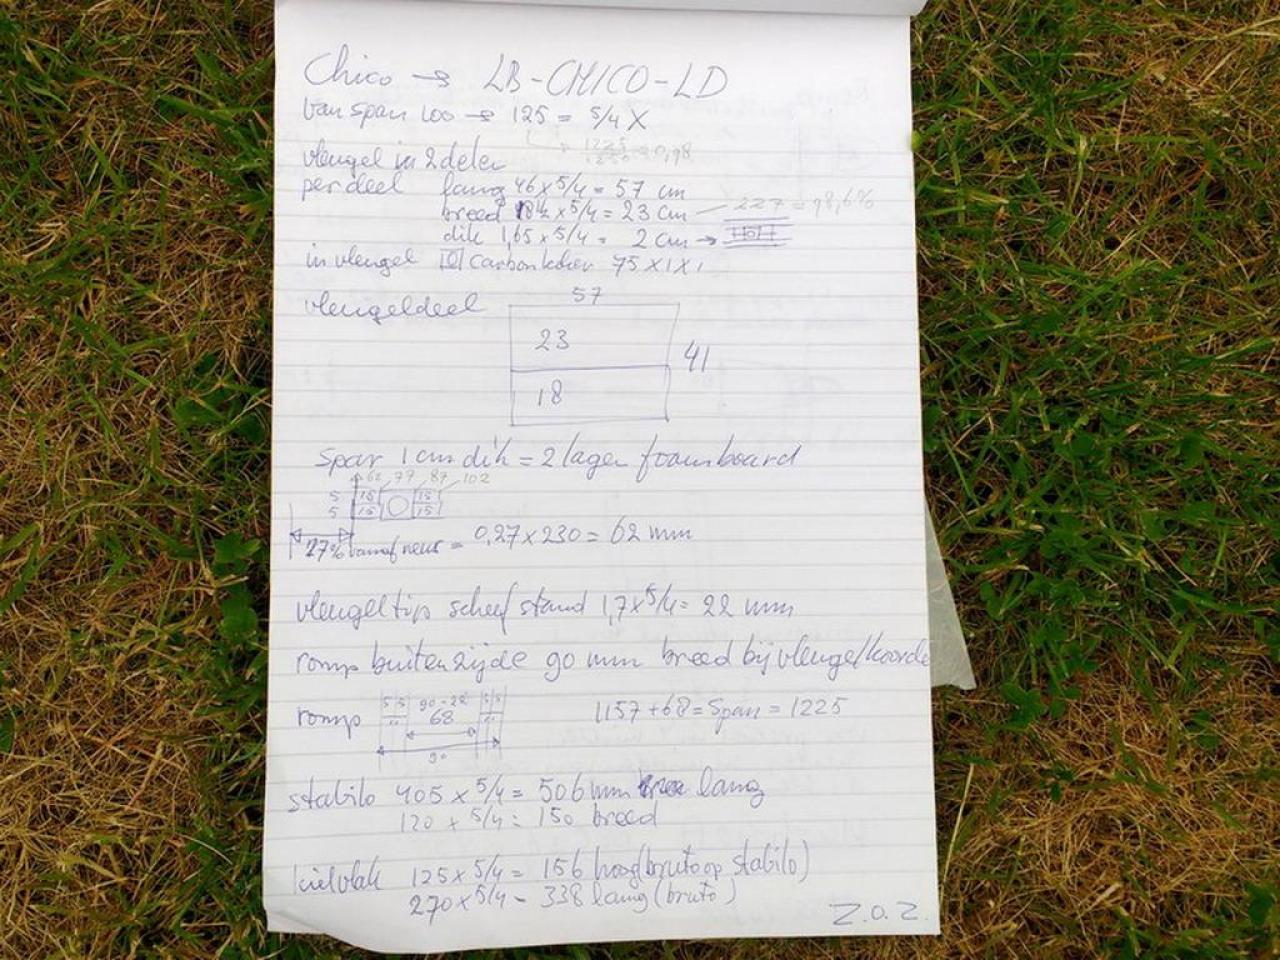 Chico → LB-CHICO-LD
van span 100 → 125 = 5/4 X
1225
1250 = 0,98
vleugel in 2 delen
per deel lang 46 x 5/4 = 57 cm
breed 18½ x 5/4 = 23 cm — 227 = 98,6%
dik 1,65 x 5/4 = 2 cm →
in vleugel carbonkoker 75 x 1 x 1
vleugeldeel
57
23
41
18
spar 1 cm dik = 2 lagen foamboard
62 77 87 102
5 15 15
5 15 15
27% vanaf neus = 0,27 x 230 = 62 mm
vleugeltip scheef stand 1,7 x 5/4 = 22 mm
romp buitenzijde 90 mm breed bij vleugelkoorde
romp
5 5 90-22 5 5
68
90
1157 + 68 = Span = 1225
stabilo 405 x 5/4 = 506 mm lang
120 x 5/4 = 150 breed
kielvlak 125 x 5/4 = 156 hoog (bruto op stabilo)
270 x 5/4 = 338 lang (bruto)
Z.O.Z.